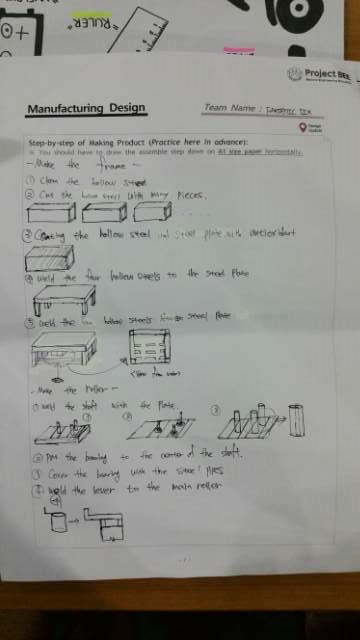 "RULER"
Project BEE
Manufacturing Design
Team Name : FANTASTIC SIX
Design Update
Step-by-step of Making Product (Practice here in advance):
You should have to draw the assemble step down on A3 size paper horizontally.
- Make the frame -
① Clean the hollow steel
② Cut the hollow steel with many pieces.
③ Coating the hollow steel and steel plate with antioxidant
④ Weld the four hollow steels to the steel plate
⑤ Weld the hollow steels steel plate
- Make the roller -
① Weld the shaft with the plate.
① ② ③
② Put the bearing to the center of the shaft.
③ Cover the bearing with the steel pipes
④ Weld the lever to the main roller